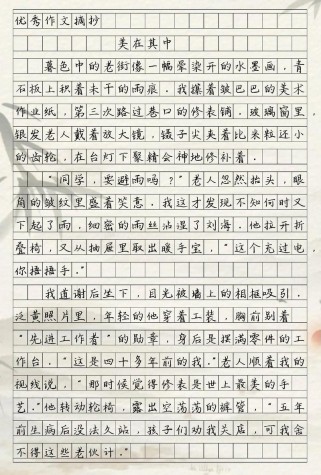 优秀作文摘抄
美在其中
暮色中的老街像一幅晕染开的水墨画，青
石板上积着未干的雨痕，我攥着皱巴巴的美术
作业纸，第三次路过巷口的修表铺，玻璃窗里，
银发老人戴着放大镜，镊子尖夹着比米粒还小
的齿轮，在台灯下聚精会神地修补着．
“同学，要避雨吗？”老人忽然抬头，眼
角的皱纹里盛着笑意，我这才发现不知何时又
下起了雨，细密的雨丝沾湿了刘海，他拉开折
叠椅，又从抽屉里取出暖手宝，“这个充过电，
你捂捂手．”
我道谢后坐下，目光被墙上的相框吸引，
泛黄照片里，年轻的他穿着工装，胸前别着
“先进工作者”的勋章，身后是摆满零件的工
作台．“这是四十多年前的我．”老人顺着我的
视线说，“那时候觉得修表是世上最美的手
艺．”他转动轮椅，露出空荡荡的裤管，“五年
前生病后没法久站，孩子们劝我关店，可我舍
不得这些老伙计．”